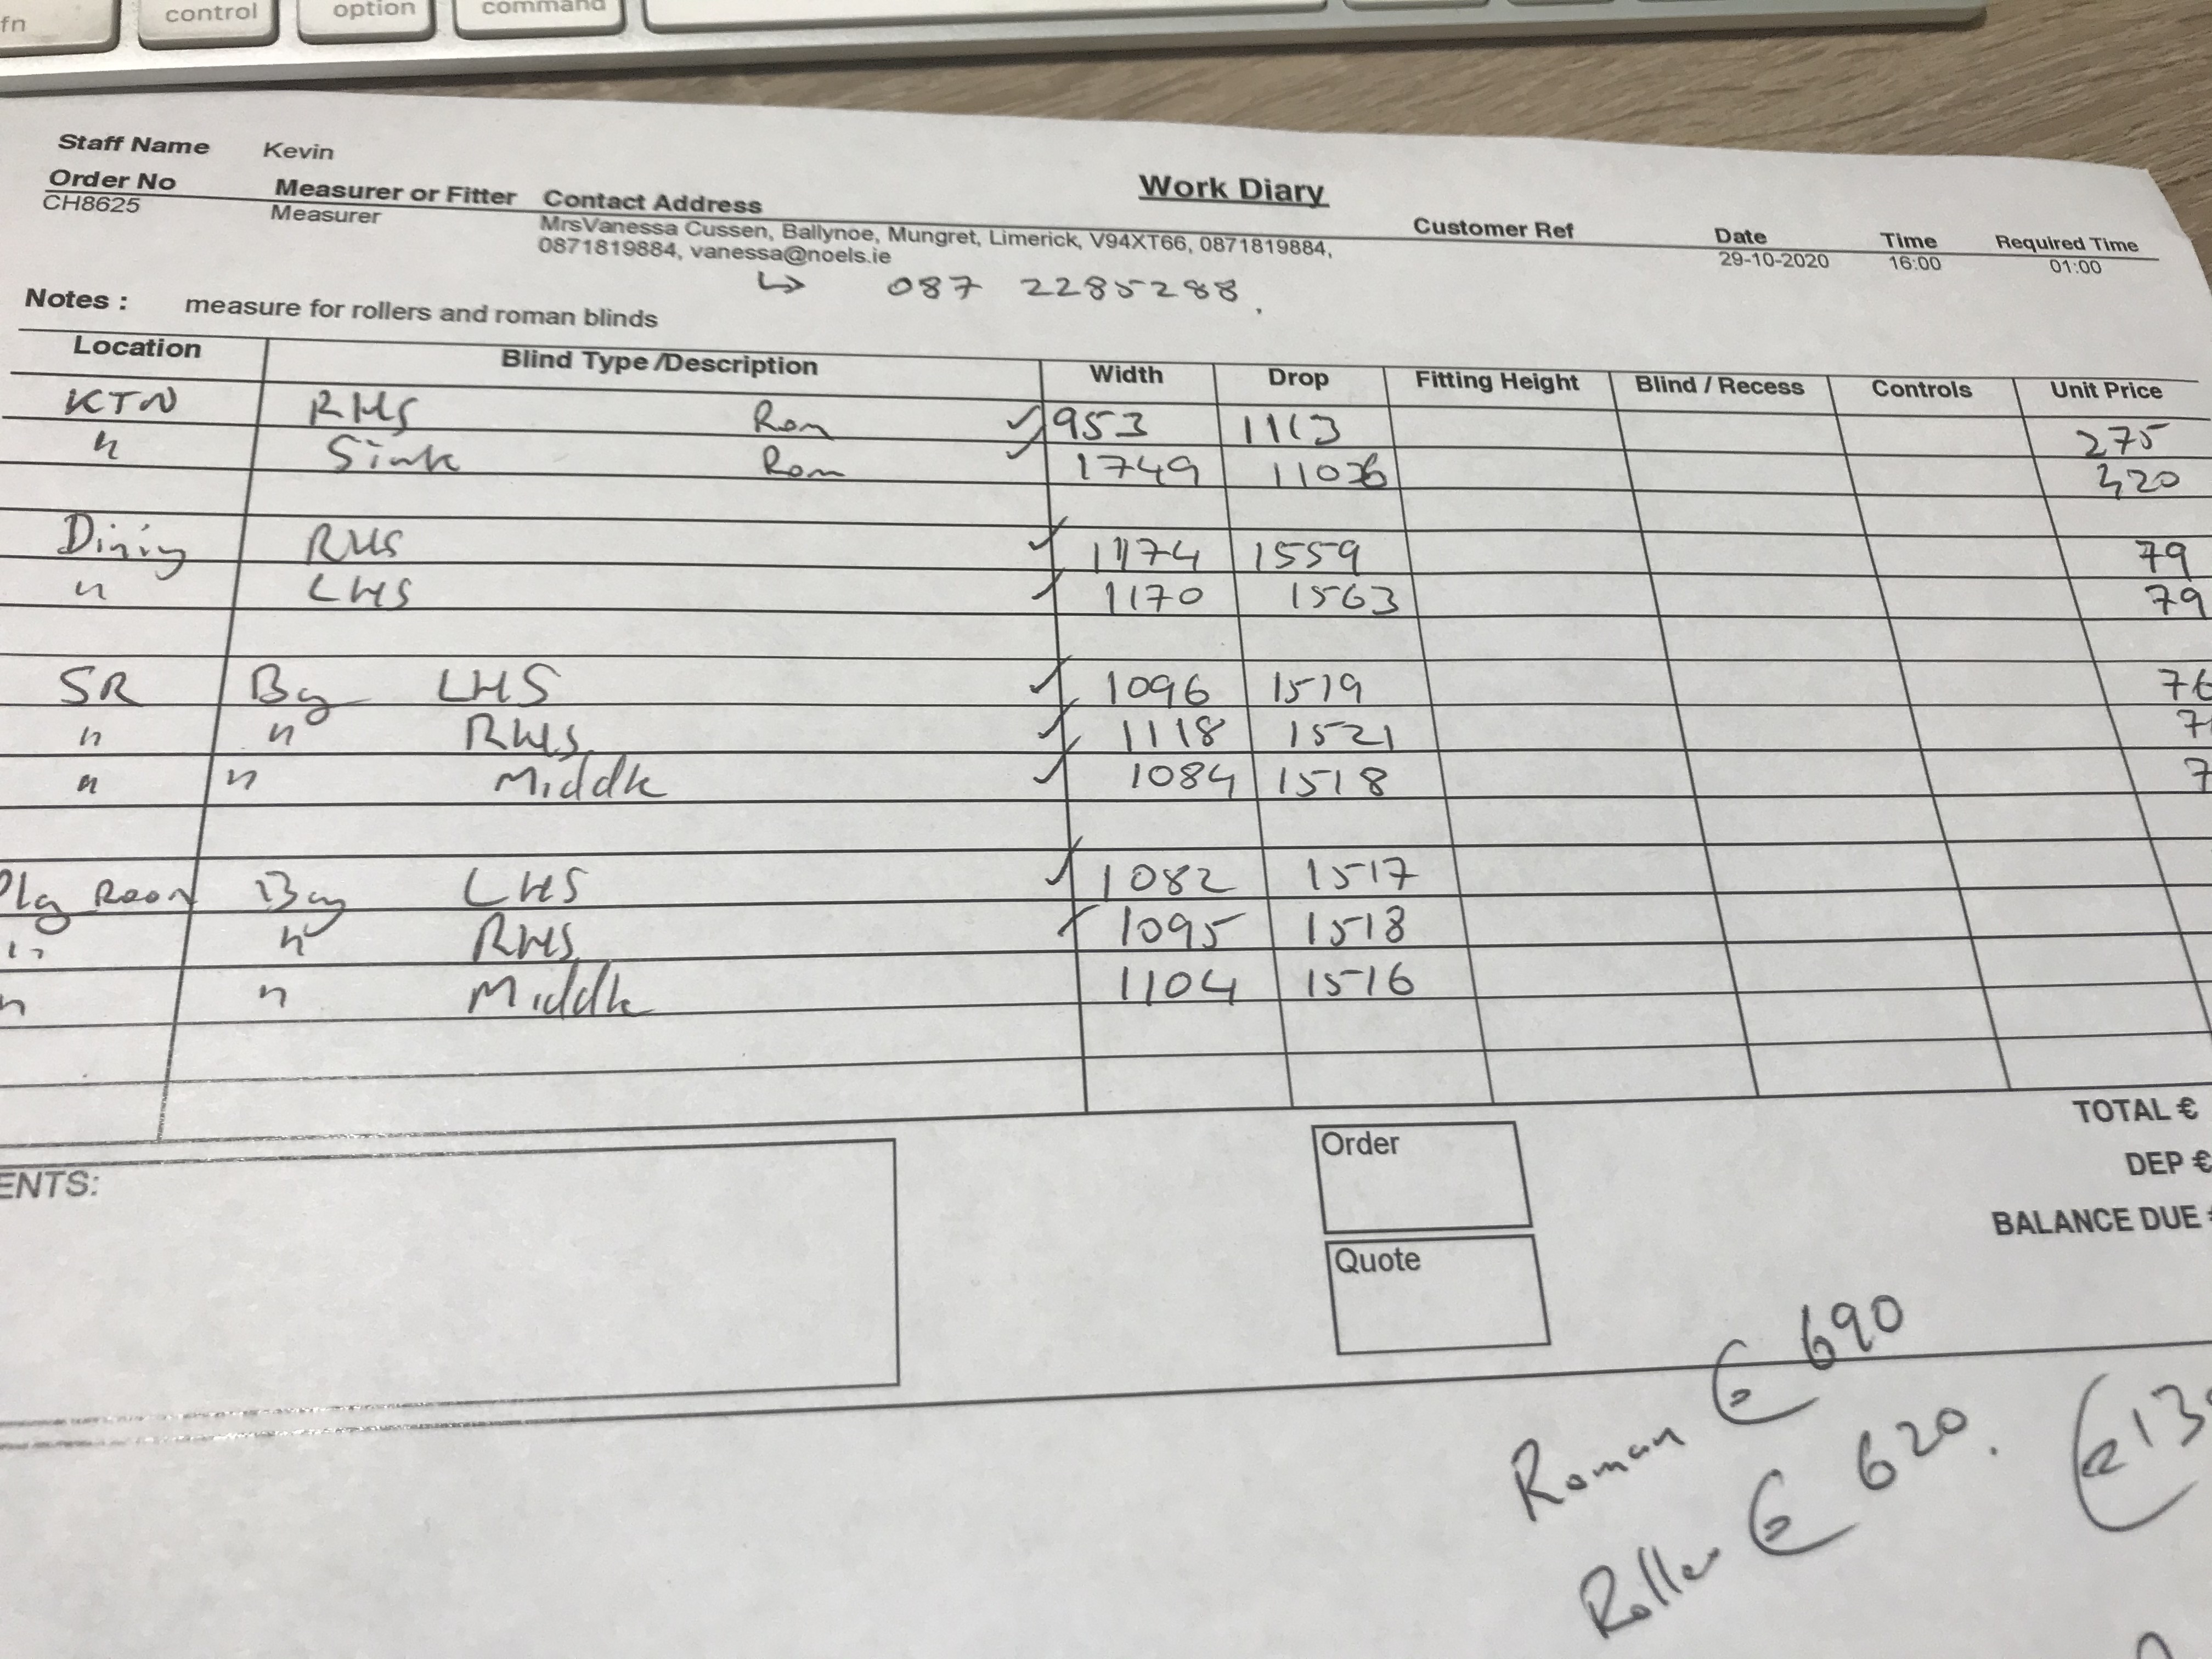 fn control option command
Staff Name Kevin
Work Diary
Order No Measurer or Fitter Contact Address Customer Ref Date Time Required Time
CH8625 Measurer MrsVanessa Cussen, Ballynoe, Mungret, Limerick, V94XT66, 0871819884, 29-10-2020 16:00 01:00
0871819884, vanessa@noels.ie
↳ 087 2285288.
Notes : measure for rollers and roman blinds
Location Blind Type /Description Width Drop Fitting Height Blind / Recess Controls Unit Price
KTN RHS Rom ✓ 953 1113 275
" Sink Rom ✓ 1749 420
Dining RHS ✓ 1174 1559 79
" LHS ✓ 1170 1563 79
SR Bay LHS ✓ 1096 1519 76
" " RHS ✓ 1118 1521
" " Middle ✓ 1084 1518 7
Play Room Bay LHS ✓ 1082 1517
" " RHS ✓ 1095 1518
" " Middle 1104 1516
TOTAL €
ENTS: Order DEP €
BALANCE DUE €
Quote
Roman € 690
Roller € 620. €13